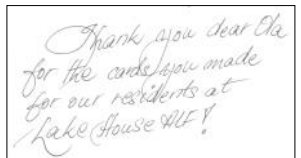 Thank you dear Ola
for the cards you made
for our residents at
Lake House ALF!